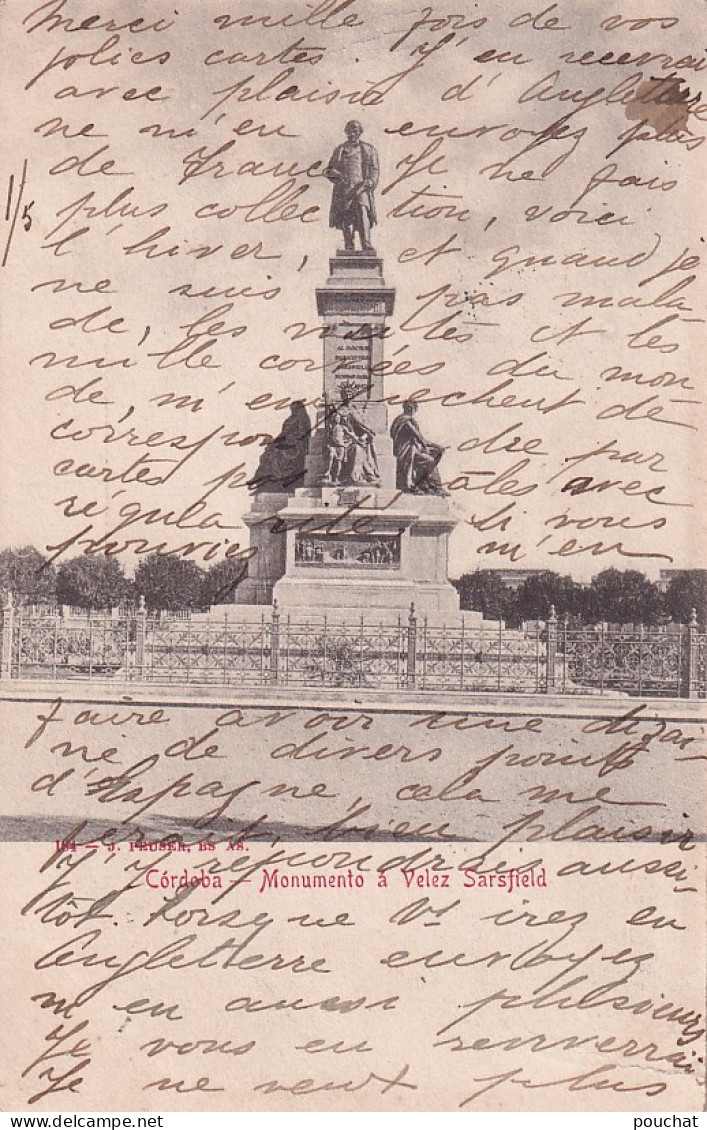 Merci mille fois de vos
jolies cartes. J'en recevrai
avec plaisir d'Angleterre
ne m'en envoyez plus
de France Je ne fais
1/5
plus collection, voici
l'hiver, et quand je
ne suis pas mala
de, les visites et les
mille corvées du mon
de, m'empêchent de
correspondre par
cartes postales avec
régularité. Si vous
pouviez m'en
AL DOCTOR
faire avoir une dizai-
ne de divers points
d'Espagne, cela me
ferait bien plaisir
184 — J. PEUSER, BS AS.
J'y répondrais aussi-
Córdoba — Monumento á Velez Sarsfield
tôt. Lorsque vs irez en
Angleterre envoyez
m'en aussi plusieurs
Je vous en renverrai
Je ne veux plus
pouchat